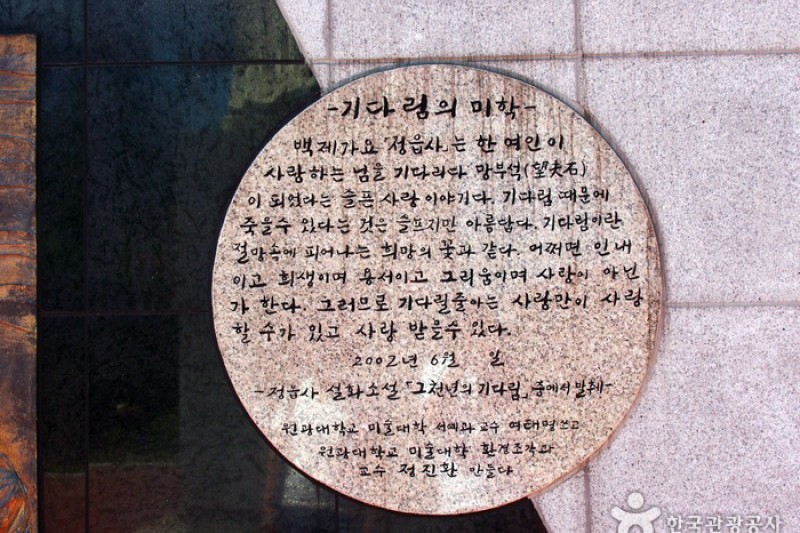 -기다림의 미학-
백제가요 「정읍사」는 한 여인이
사랑하는 님을 기다리다 망부석(望夫石)
이 되었다는 슬픈 사랑 이야기다. 기다림 때문에
죽을수 있다는 것은 슬프지만 아름답다. 기다림이란
절망속에 피어나는 희망의 꽃과 같다. 어쩌면 인내
이고 희생이며 용서이고 그리움이며 사랑이 아닌
가 한다. 그러므로 기다릴줄아는 사람만이 사랑
할 수가 있고 사랑 받을수 있다.
2002년 6월 일
-정읍사 설화소설 「그천년의 기다림」 중에서 발췌-
원광대학교 미술대학 서예과 교수 여태명 쓰고
원광대학교 미술대학 환경조각과
교수 정진환 만들다
한국관광공사